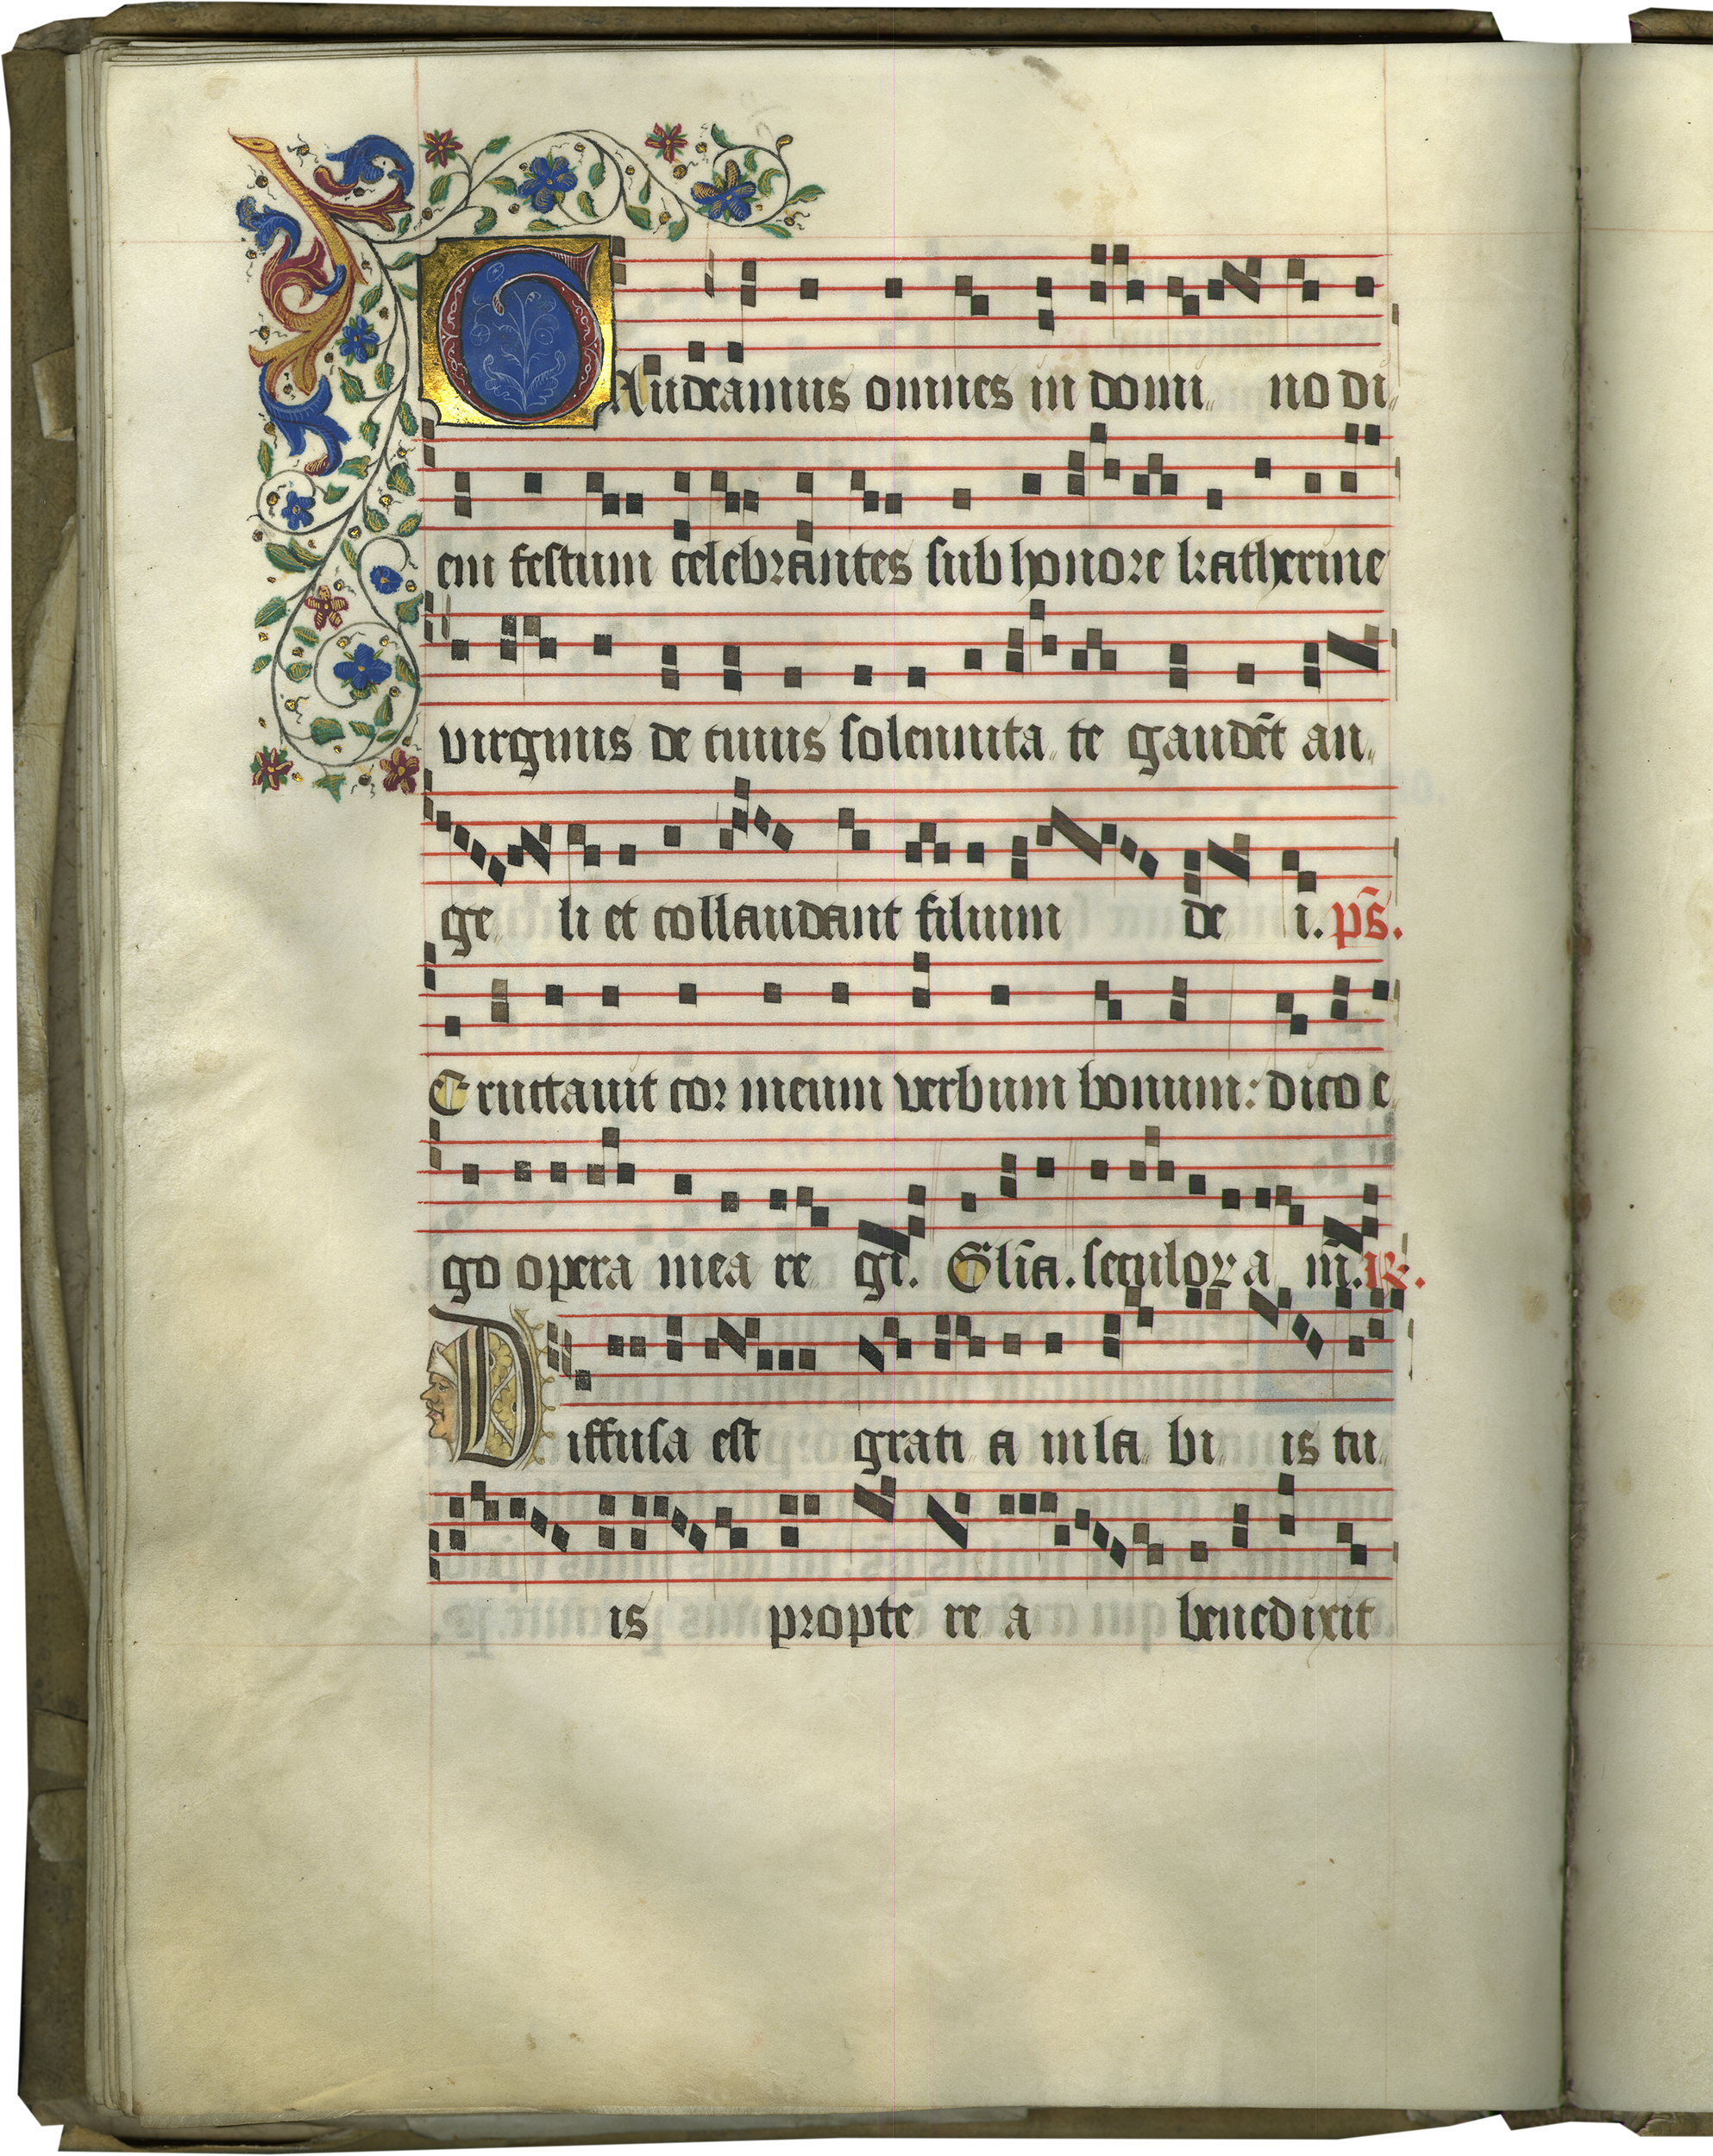 GAudeamus omnes in domi no di
em festum celebrantes sub honore katherine
virginis de cuius solennita te gaudēt an
ge li et collaudant filium de i. ps̄.
Eructauit cor meum verbum bonum: dico e
go opera mea re gi. Gl̄ia. seculoꝝ a m̄. ℟.
Diffusa est grati a in la bi is tu
is propte re a benedixit